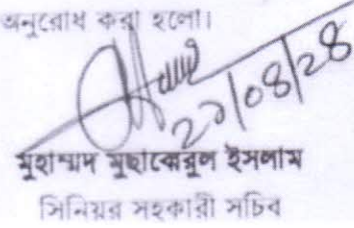 অনুরোধ করা হলো।
২১/০৪/২৪
মুহাম্মদ মুছাক্কেরুল ইসলাম
সিনিয়র সহকারী সচিব